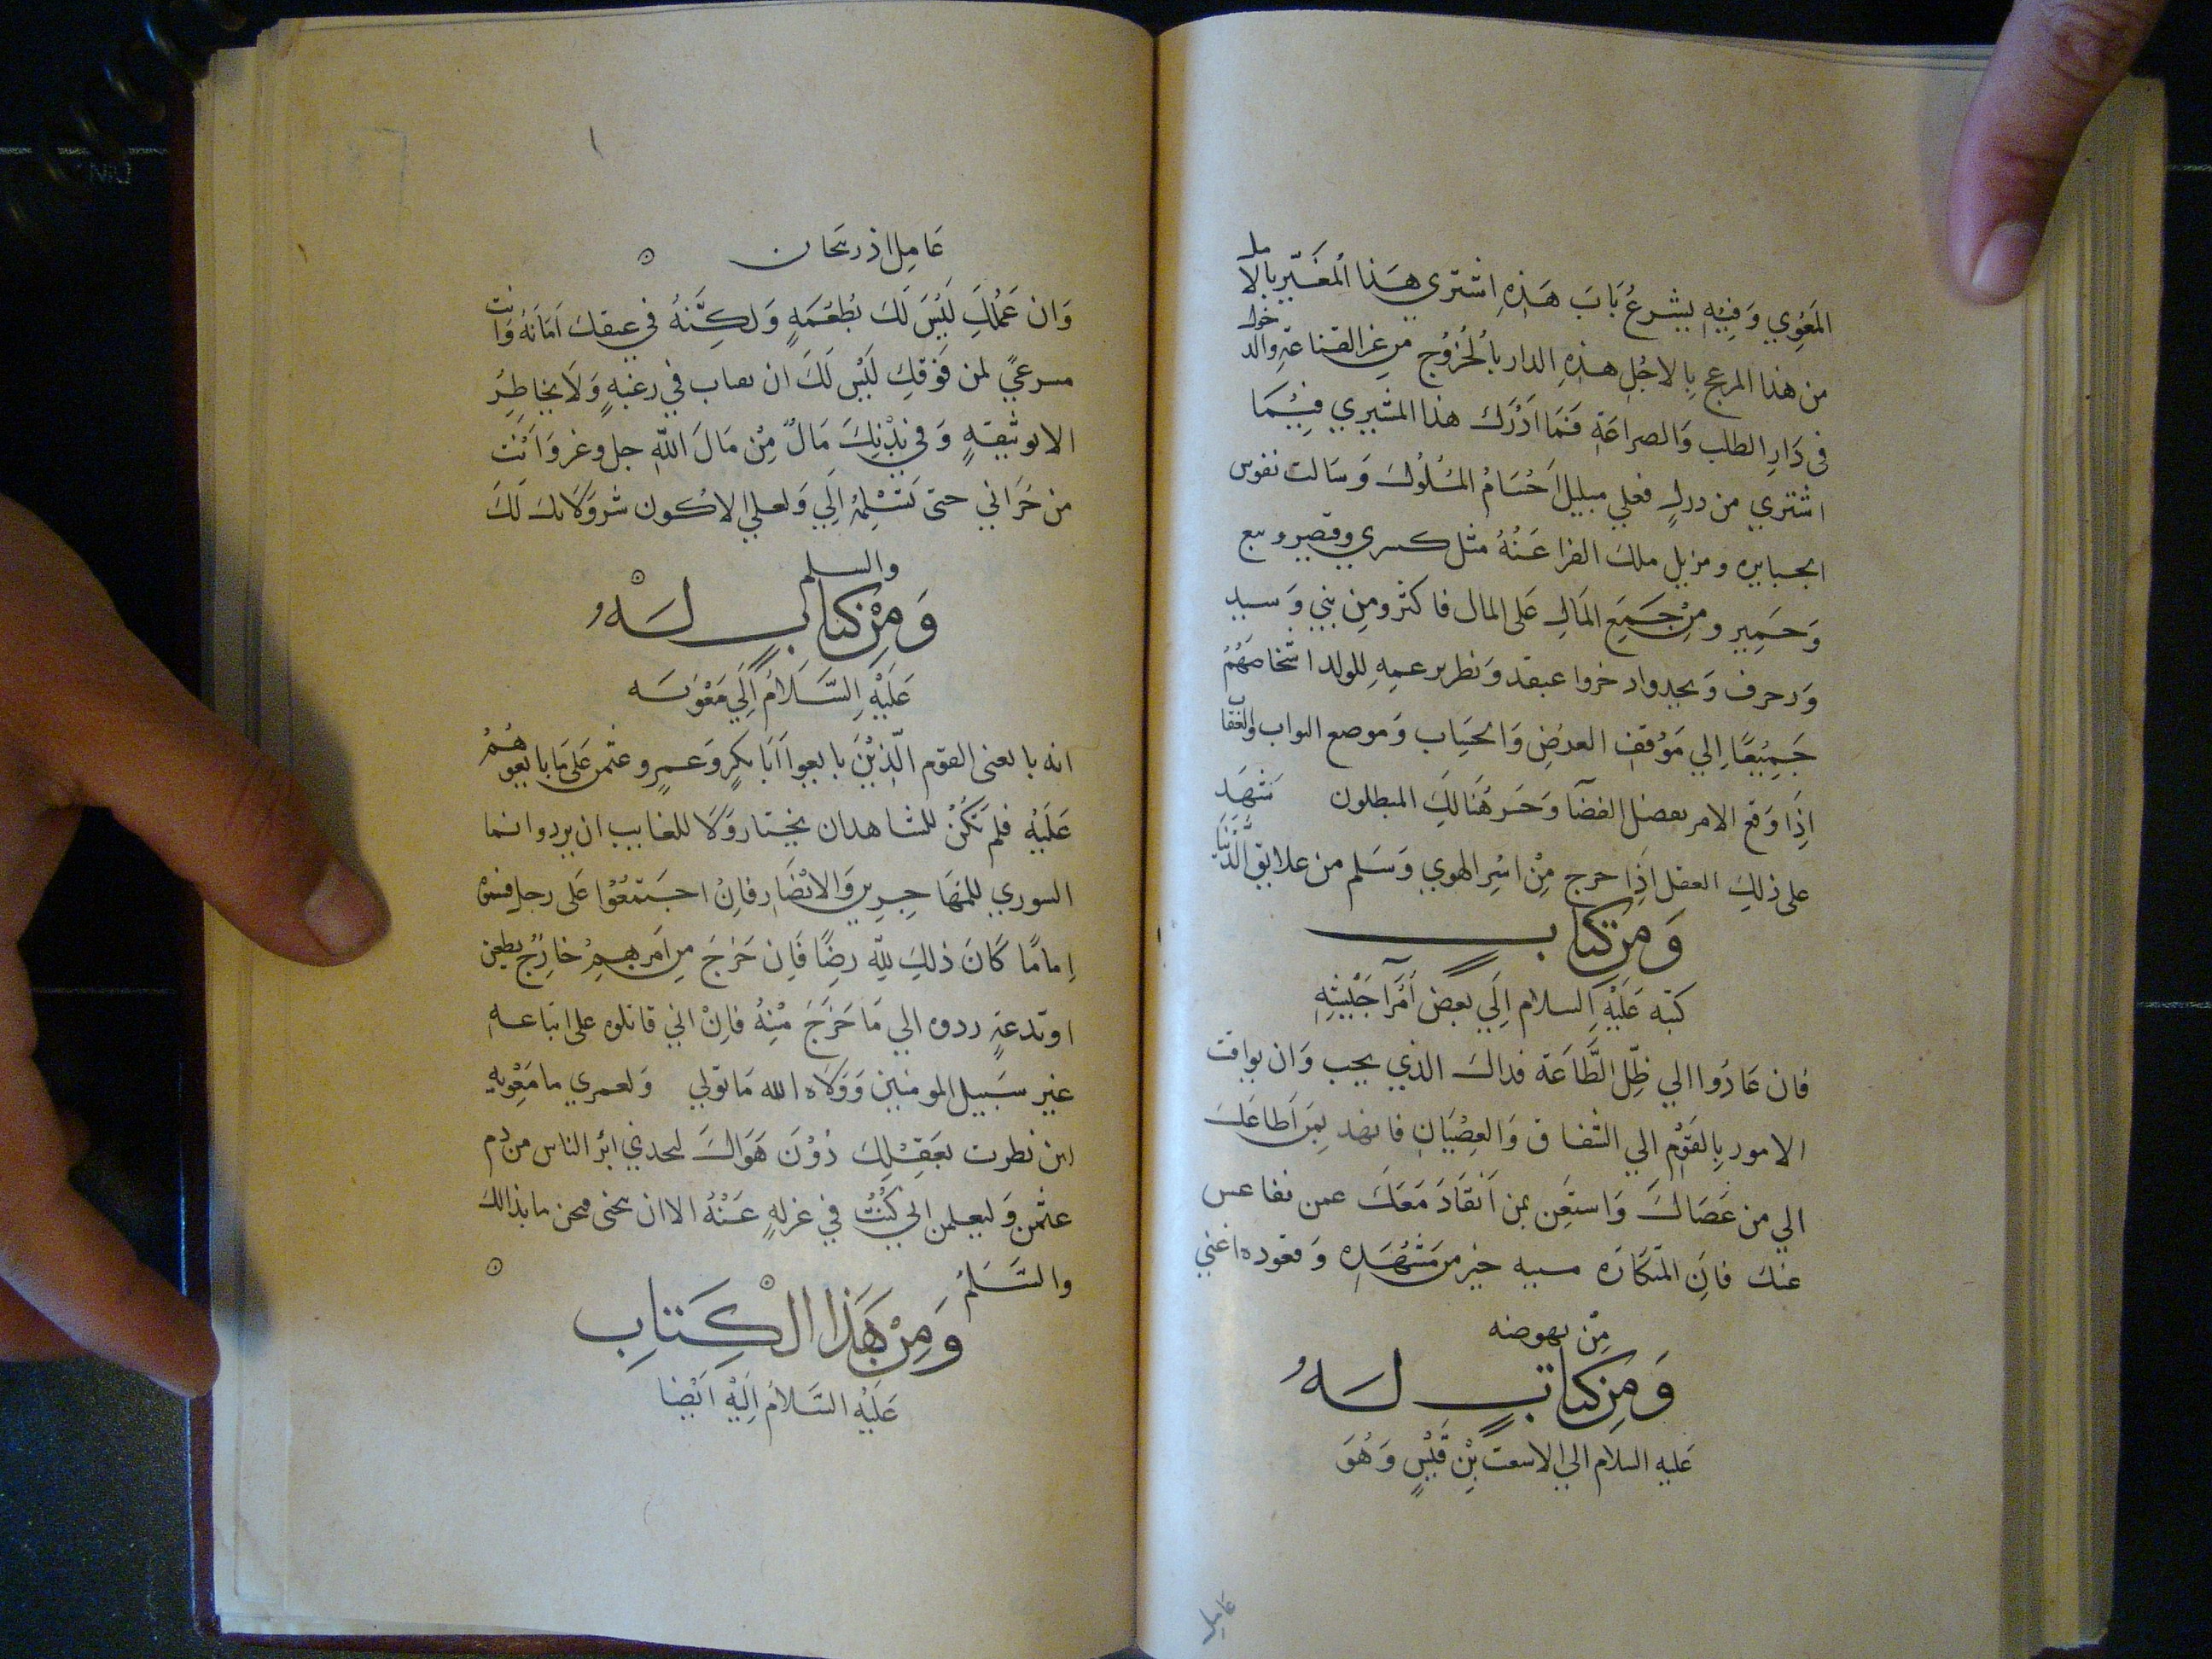 المَغوِي وَفيْهِ يشرعُ بَابَ هَذِهِ اِشترى هَذا المغتَر بالامل
من هذا المزعج بِالاجُلِ هذِهِ الدار باُلخروُج مِن عز القناعَةِ والدخول
في دَارِ الطلب وَالضراعَةِ فَمَا اَدْرَك هذا المشتري فيْمَا
اشتري من درلٍ فعلي مبلبل اَجْسَامُ المُلُوُك وَسَالت نفوس
الجبابره ومزيل ملك الفراعَنُهُ مثل كسري وقيصر وتبع
وَحَمِير ومِنْ جَمِعَ المَالِ عَلى المال فاكثر ومِن بني وَسيد
وَرحرف وَنجد وادخروا عبقد وَنظر برعمهِ للولد اشخاصَهُمْ
جَمِيْعًا اِلي مَوْقفِ العرَضِ وَالحسَاب وَموضع الثواب والعقاب
اذَا وَقع الامر بفصل القضآ وَخسَر هُنالِكَ المبطلون شَهَدَ
على ذلِكَ العقل اذَا خرج مِنْ اسْرِ الهوي وَسَلم من علايق الدُّنْيَا
وَمِن كتابٍ
كتبه عَلَيْهِ السلام اِلَي بعض اُمَرآ جَيْشِهِ
فان عَادُوا الي ظِلّ الطَّاعَة فداك الذي يحب وَان توافت
الامور بِالقَوْم الي الشقاق وَالعِصْيَان فانهد بِمَن اَطاعَكَ
الي من عَصَاكَ وَاستَعِن بمن اَنقَادَ مَعَكَ عمن تقاعس
عنك فاِنَ المتكَارَه مسيه خير من مَشْهَدِهِ وَقعوده اغني
مِنْ نهوضه
وَمِن كتابٍ لَهُ
عَليه السلام الي الاشعث بْنِ قَيْسٍ وَهُوَ
عامل
عَامِلِ اذربيجان
وَان عَمُلكَ لَيْسَ لَكَ بطُعْمَهٍ وَلكِنَّهُ في عنقك اَمَانَهُ وَانت
مسرعيً لمن فَوْقكِ لَيْس لَكَ ان تعاب في رعيهٍ وَلَا يخاطِرُ
الا بوثيقهٍ وَفي يَدَيْكَ مَالٌ مِنْ مَالَ اللهِ جل وعز وَاَنْت
من خَزَاني حتى تَسَلِّمَهُ اِلَي وَلعلي الا اُكون شر وَلَاتك لَكَ
والسلم
وَمِنْ كتابٍ لَهْ
عَلَيْهِ السَّلَامُ اِلَي مَعْوَيَه
انه بايعنى القوم الّذِيْنَ بايعوا اَبَا بَكرٍ وَعمرٍ وعثمن عَلى مَا بايعوهُمْ
عَلَيْهِ فلم تَكُنْ للشاهد ان يختار وَلَا للغايب ان يرد وانما
الشوري للمهَاجِرِين وَالانْصَار فاِنْ اجتَمَعُوْا عَلى رجل فسموه
اِمامًا كَانَ ذلِكَ لِلّهِ رضًا فَاِن خَرَجَ مِن اَمرِهِم خارِجُ بطعن
او بدعةٍ ردوه الي مَا خَرَجَ مِنْهُ فاِنْ ابي قاتلوه على اتباعه
غير سَبيل المومنين وَوَلَاه الله مَا تولي وَلعمري يا مَعْويه
لين نظرت بعَقِلْكَ دُوْنَ هَوَاكَ لتجدني ابرُ الناس من دم
عثمن وَليعلمن اني كُنْتُ في عزلهٍ عَنْهُ الا ان تجنى فتجن ما بدالك
والسَّلَمُ
وَمِنْ هَذَا الْكِتَابِ
عَلَيْهِ السَّلَامُ اِلَيْهِ اَيْضا